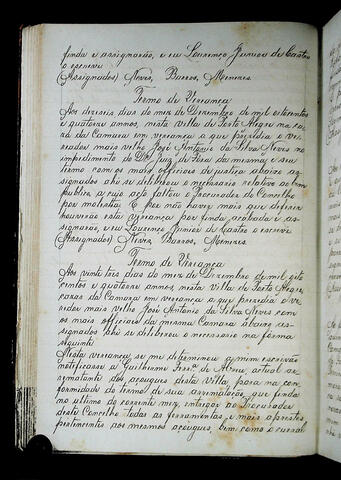 finda e assignarão, e eu Lourenço Junior de Castro
o escrevi
(Assignados) Neves, Barros, Menezes
Termo de Vereança
Aos dezeseis dias do mez de Dezembro de mil oitocentos
e quatorze annos, nesta Villa de Porto Alegre na ca-
sa da Camara em vereança a que presidio o ve-
reador mais velho José Antonio da Silva Neves no
impedimento do Dr. Juiz de Fóra da mesma, e seu
termo com os mais officiaes de justiça abaixo as-
signados ahi se deliberou o necessario relativo ao bem
publico, a cujo acto faltou o Procurador do Concelho
por molestia. E por não haver mais que deferir
houverão esta vereança por finda acabada e as-
signarão, e eu Lourenço Junior de Castro o escrevi
(Assignados) Neves, Barros, Menezes.
Termo de Vereança
Aos vinte tres dias do mez de Dezembro de mil oito
centos e quatorze annos, nesta Villa de Porto Alegre,
casas da Camara em vereança a que presidio o ve-
reador mais velho José Antonio da Silva Neves com
os mais officiaes da mesma Camara abaixo as-
signados ahi se deliberou o necessario na forma
seguinte
Nesta vereança se me determinou a mim escrivão
notificasse a Guilherme Ferr.ª de Abreu, actual ar-
rematante dos açougues desta Villa, para na con-
formidade do termo de sua arrematação, que finda
no ultimo do corrente mez, entregar ao Procurador
deste Concelho todas as ferramentas, e mais aprestos
pertencentes aos mesmos açougues, bem como o curral